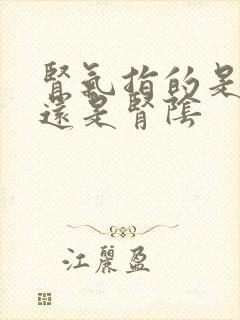 腎氣指的是
還是腎陰
江麗盈